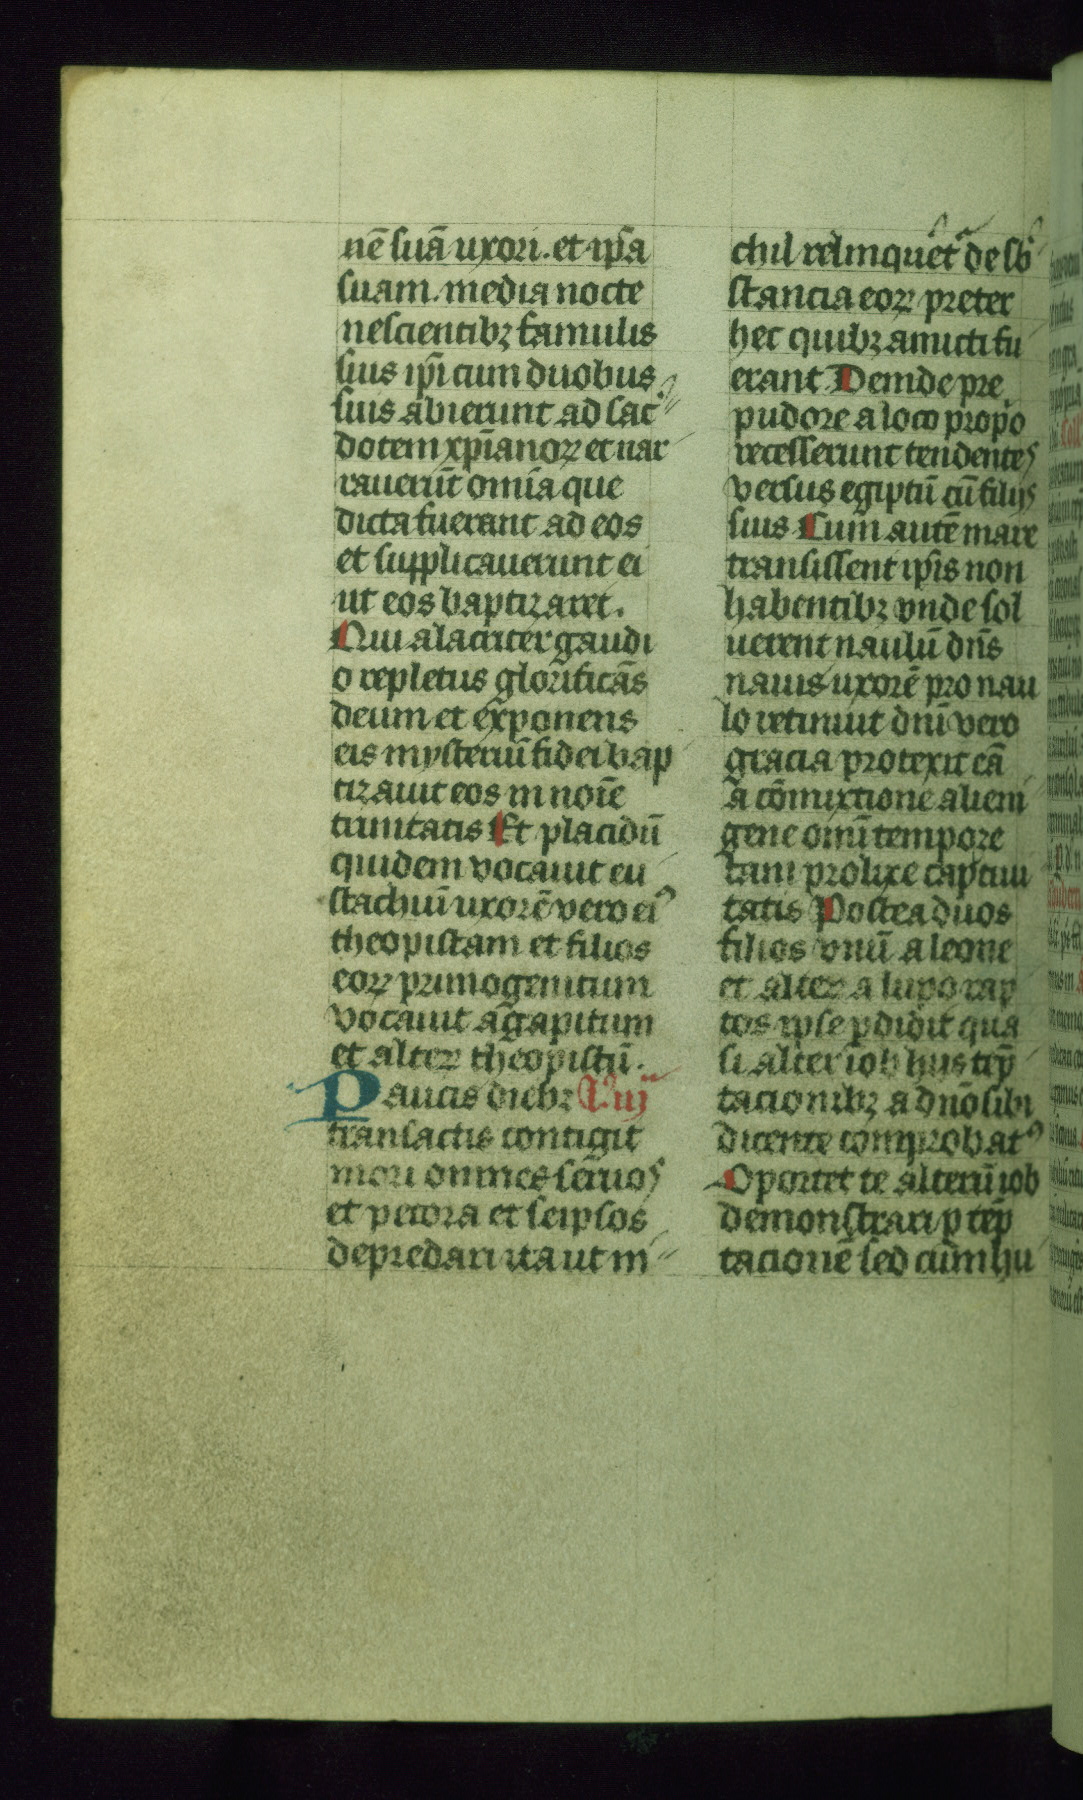 nē suā uxori. et ip̄a
suam. media nocte
nescientibꝫ famulis
suis ip̄i cum duobus
suis abierunt ad sac̄
dotem xp̄ianoꝝ et nar
rauerūt omīa que
dicta fuerant ad eos
et supplicauerunt ei
ut eos baptizaret.
Qui alacriter gaudi
o repletus glorificās
deum et exponens
eis mysteriū fidei bap
tizauit eos in noīe
trinitatis Et placidū
quidem vocauit eu
stachiū uxorē vero eiꝰ
theopistam et filios
eoꝝ primogenitum
vocauit agapitum
et alteꝝ theopistū.
Paucis diebꝫ
transactis contigit
mori omnes seruos
et pecora et seipsos
depredari ita ut ni
chil relinqueret̄ de sb̄
stancia eoꝝ preter
hec quibꝫ amicti fu
erant Deinde pre
pudore a loco propo
recesserunt tendentes
versus egiptū cū filijs
suis Cum autē mare
transissent ip̄is non
habentibꝫ vnde sol
uerent naulū dn̄s
nauis uxorē pro nau
lo retinuit dnī vero
gracia protexit eā
a cōmixtione alieni
gene omī tempore
tam prolixe captiui
tatis Postea duos
filios vnū a leone
et alteꝝ a lupo rap
tos ipse p̱didit qua
si alter iob hijs tēp
tacionibꝫ a dn̄o sibi
dicente comprobatꝰ
Oportet te alterū iob
demonstrari p̱ tēp
tacionē sed cum hu